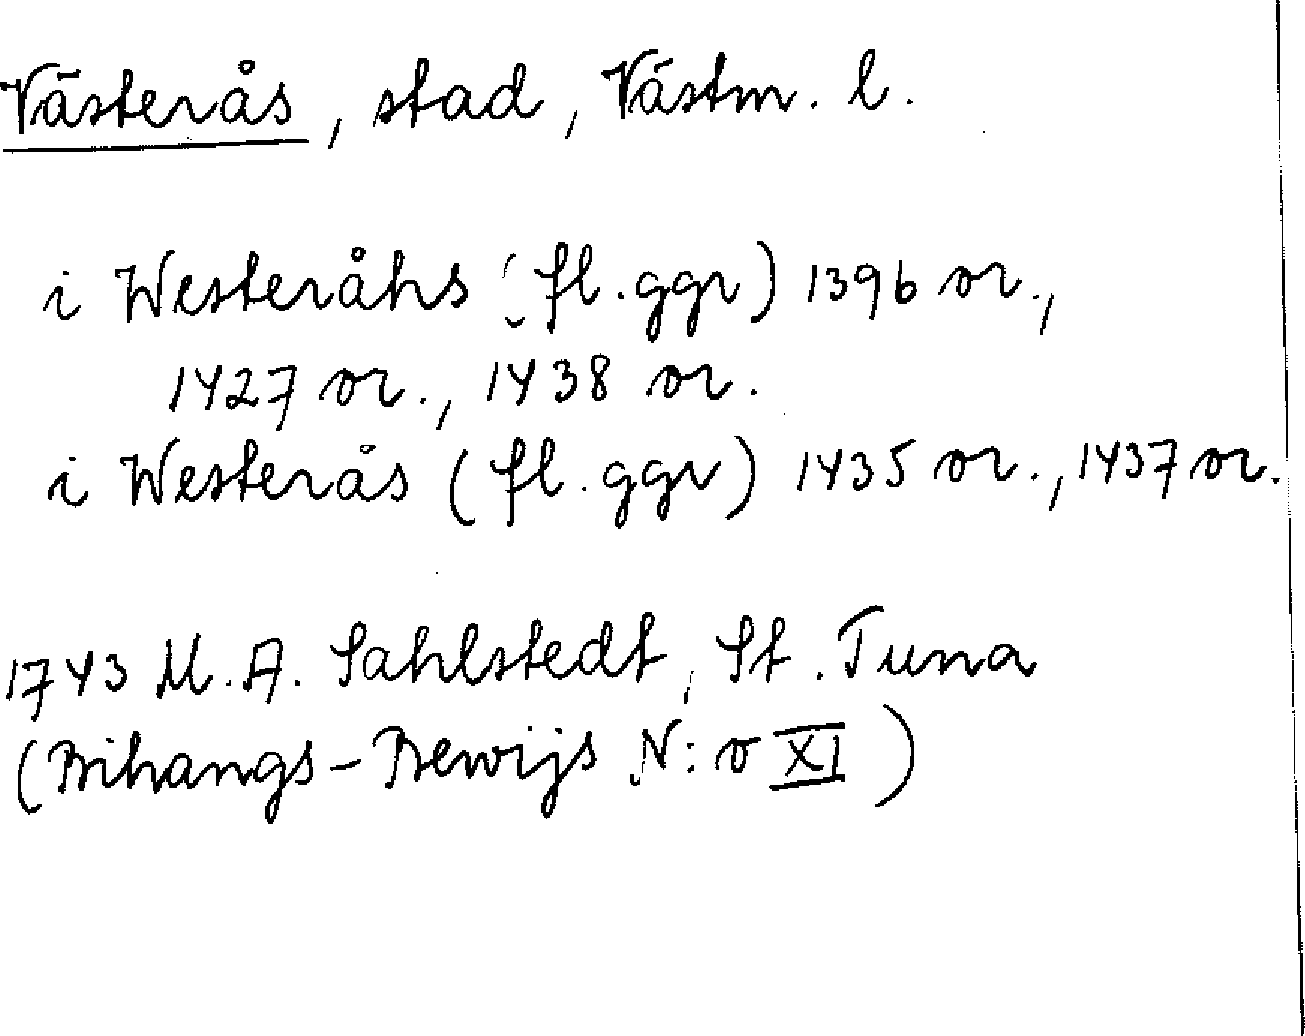 Västerås, stad, Västm. l.
i Westeråhs (fl. ggr) 1396 or.,
1427 or., 1438 or.
i Westerås (fl. ggr) 1435 or., 1437 or.
1743 M. A. Sahlstedt, St. Tuna
(Bihangs-Bewijs N:o XI)